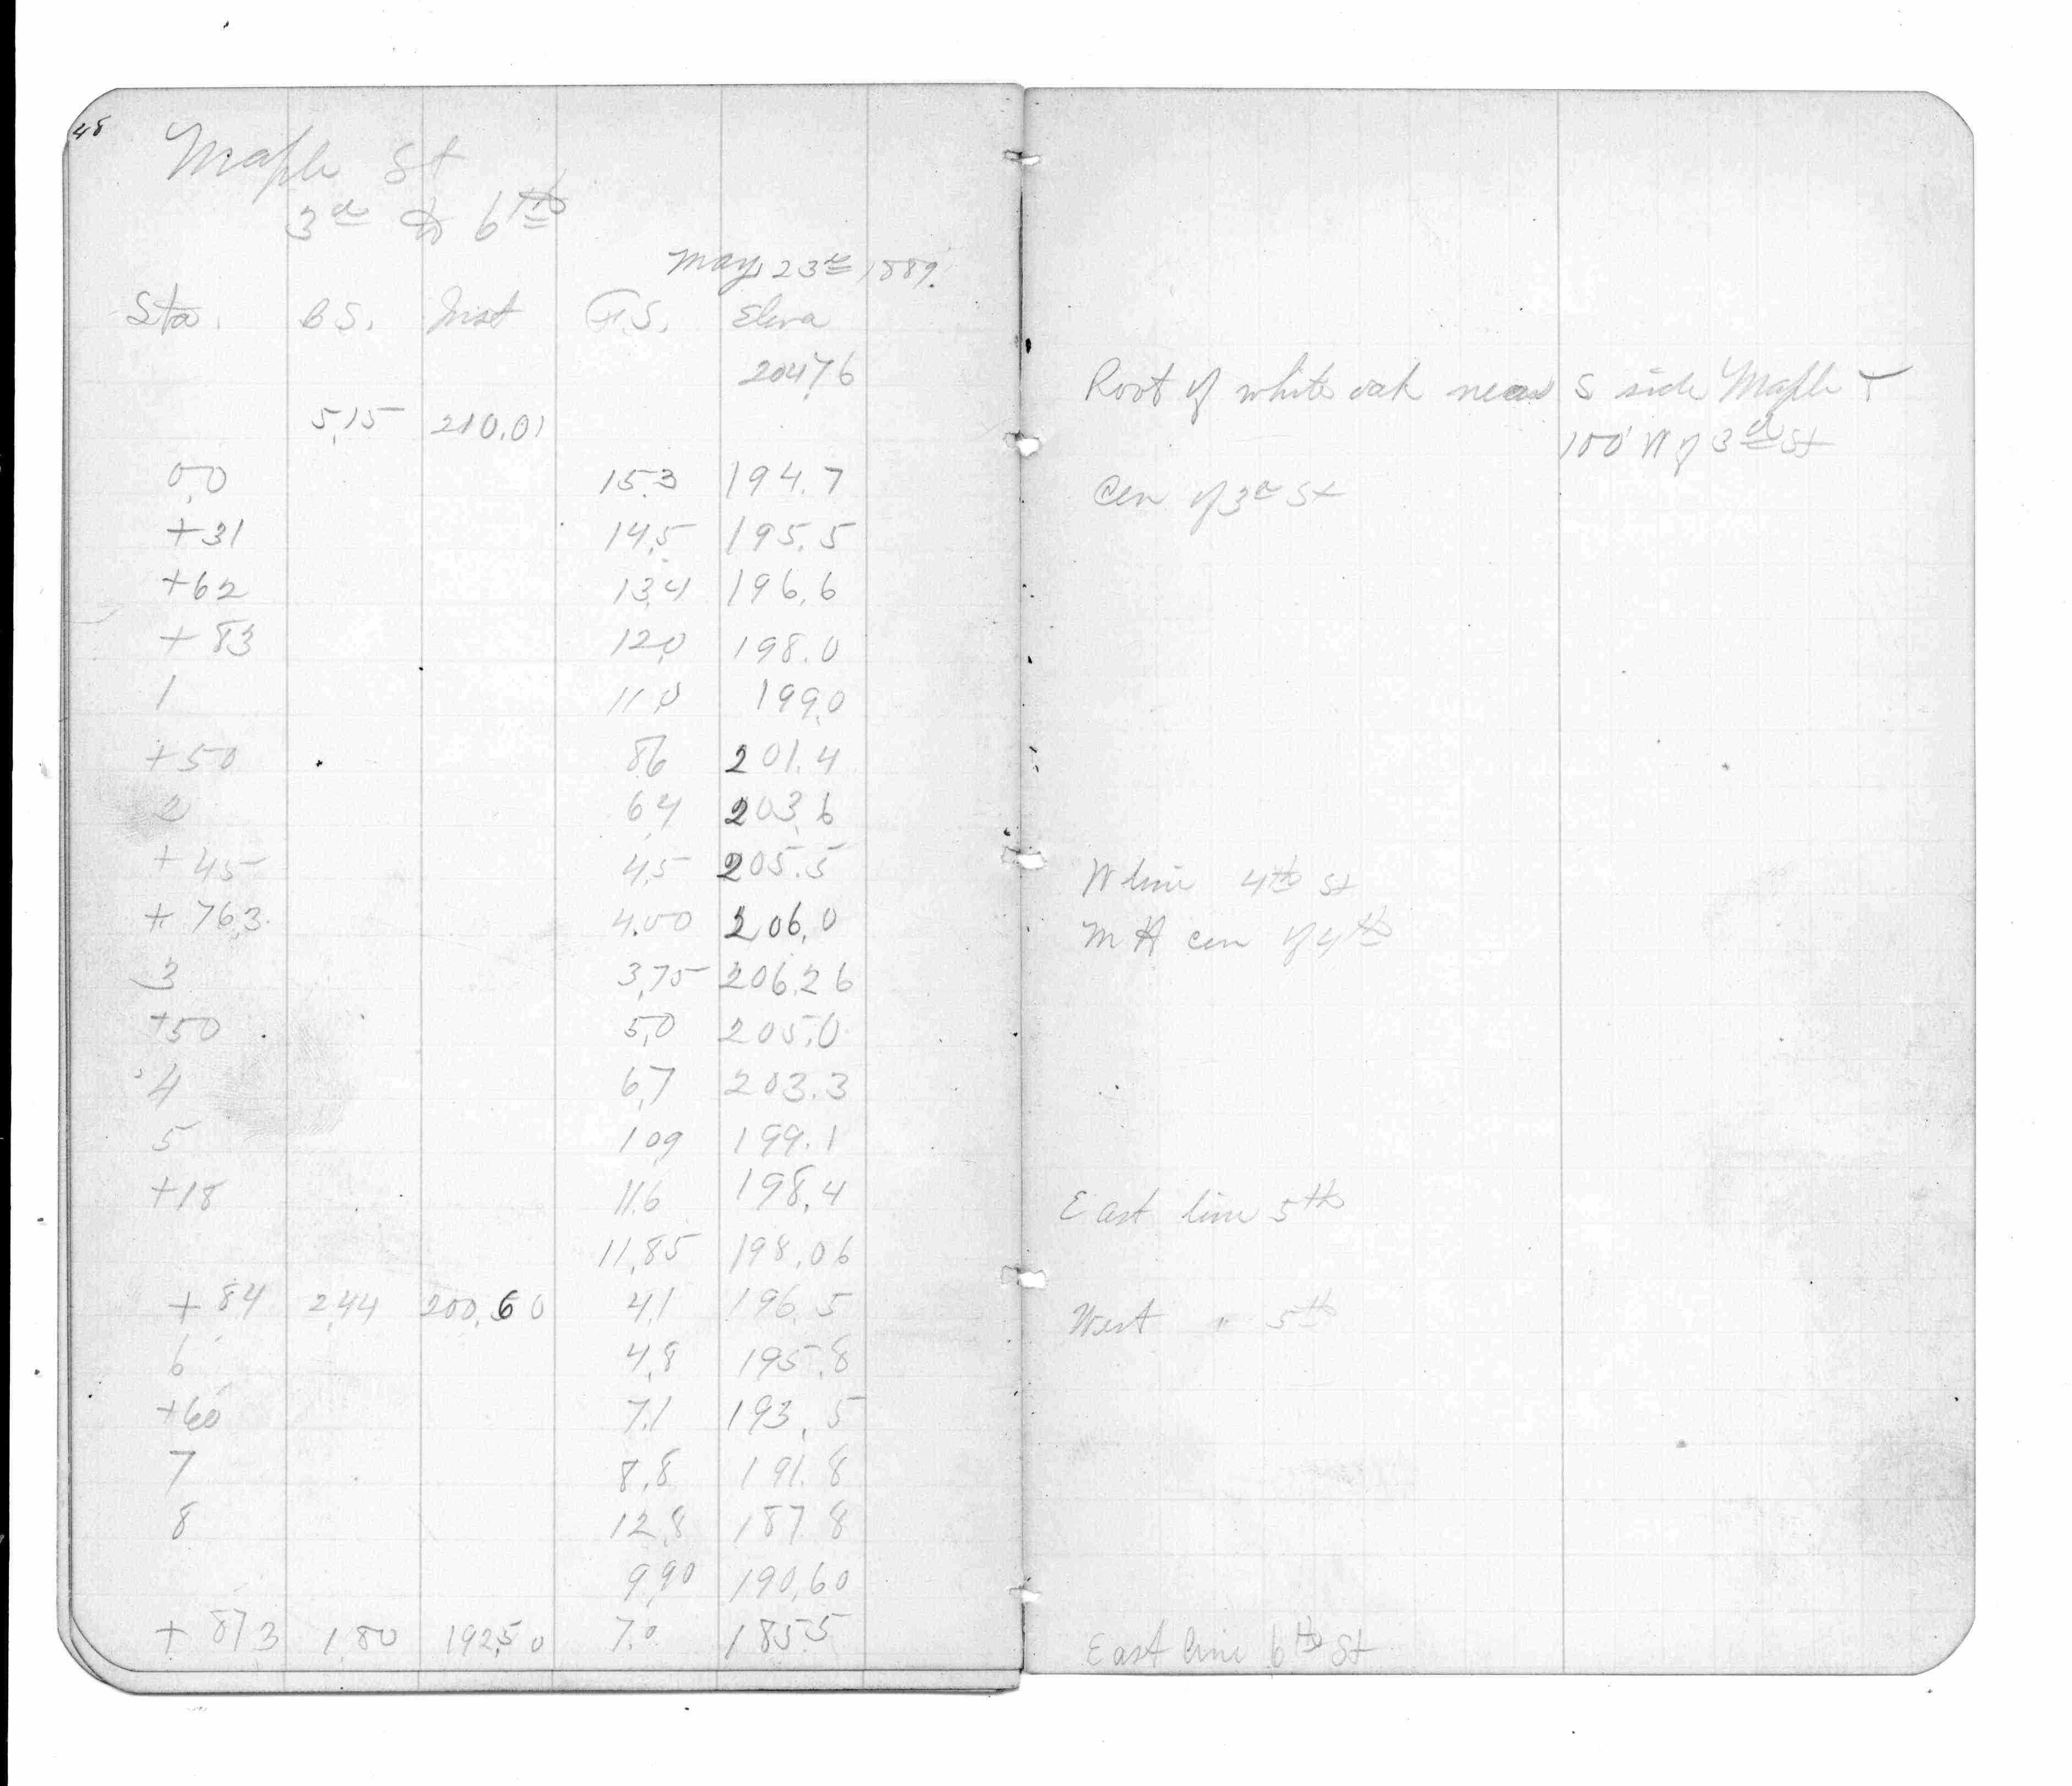 48
Maple St
3d to 6th
May 23rd 1889.
Sta. B S. Inst F.S. Eleva
204.76
5.15 210.01
0.0 15.3 194.7
+31 14.5 195.5
+62 13.4 196.6
+83 12.0 198.0
1 11.0 199.0
+50 8.6 201.4
2 6.4 203.6
+45 4.5 205.5
+ 76.3 4.00 206.0
3 3.75 206.26
+50 5.0 205.0
4 6.7 203.3
5 10.9 199.1
+18 11.6 198.4
11.85 198.06
+ 84 2.44 200.60 4.1 196.5
6 4.8 195.8
+60 7.1 193.5
7 8.8 191.8
8 12.8 187.8
9.90 190.60
+ 87.3 1.80 192.50 7.0 185.5
Root of white oak near S side Maple &
100' W of 3d St
Cen of 3d St
W line 4th St
M H cen of 4th
East line 5th
West " 5th
East line 6th St